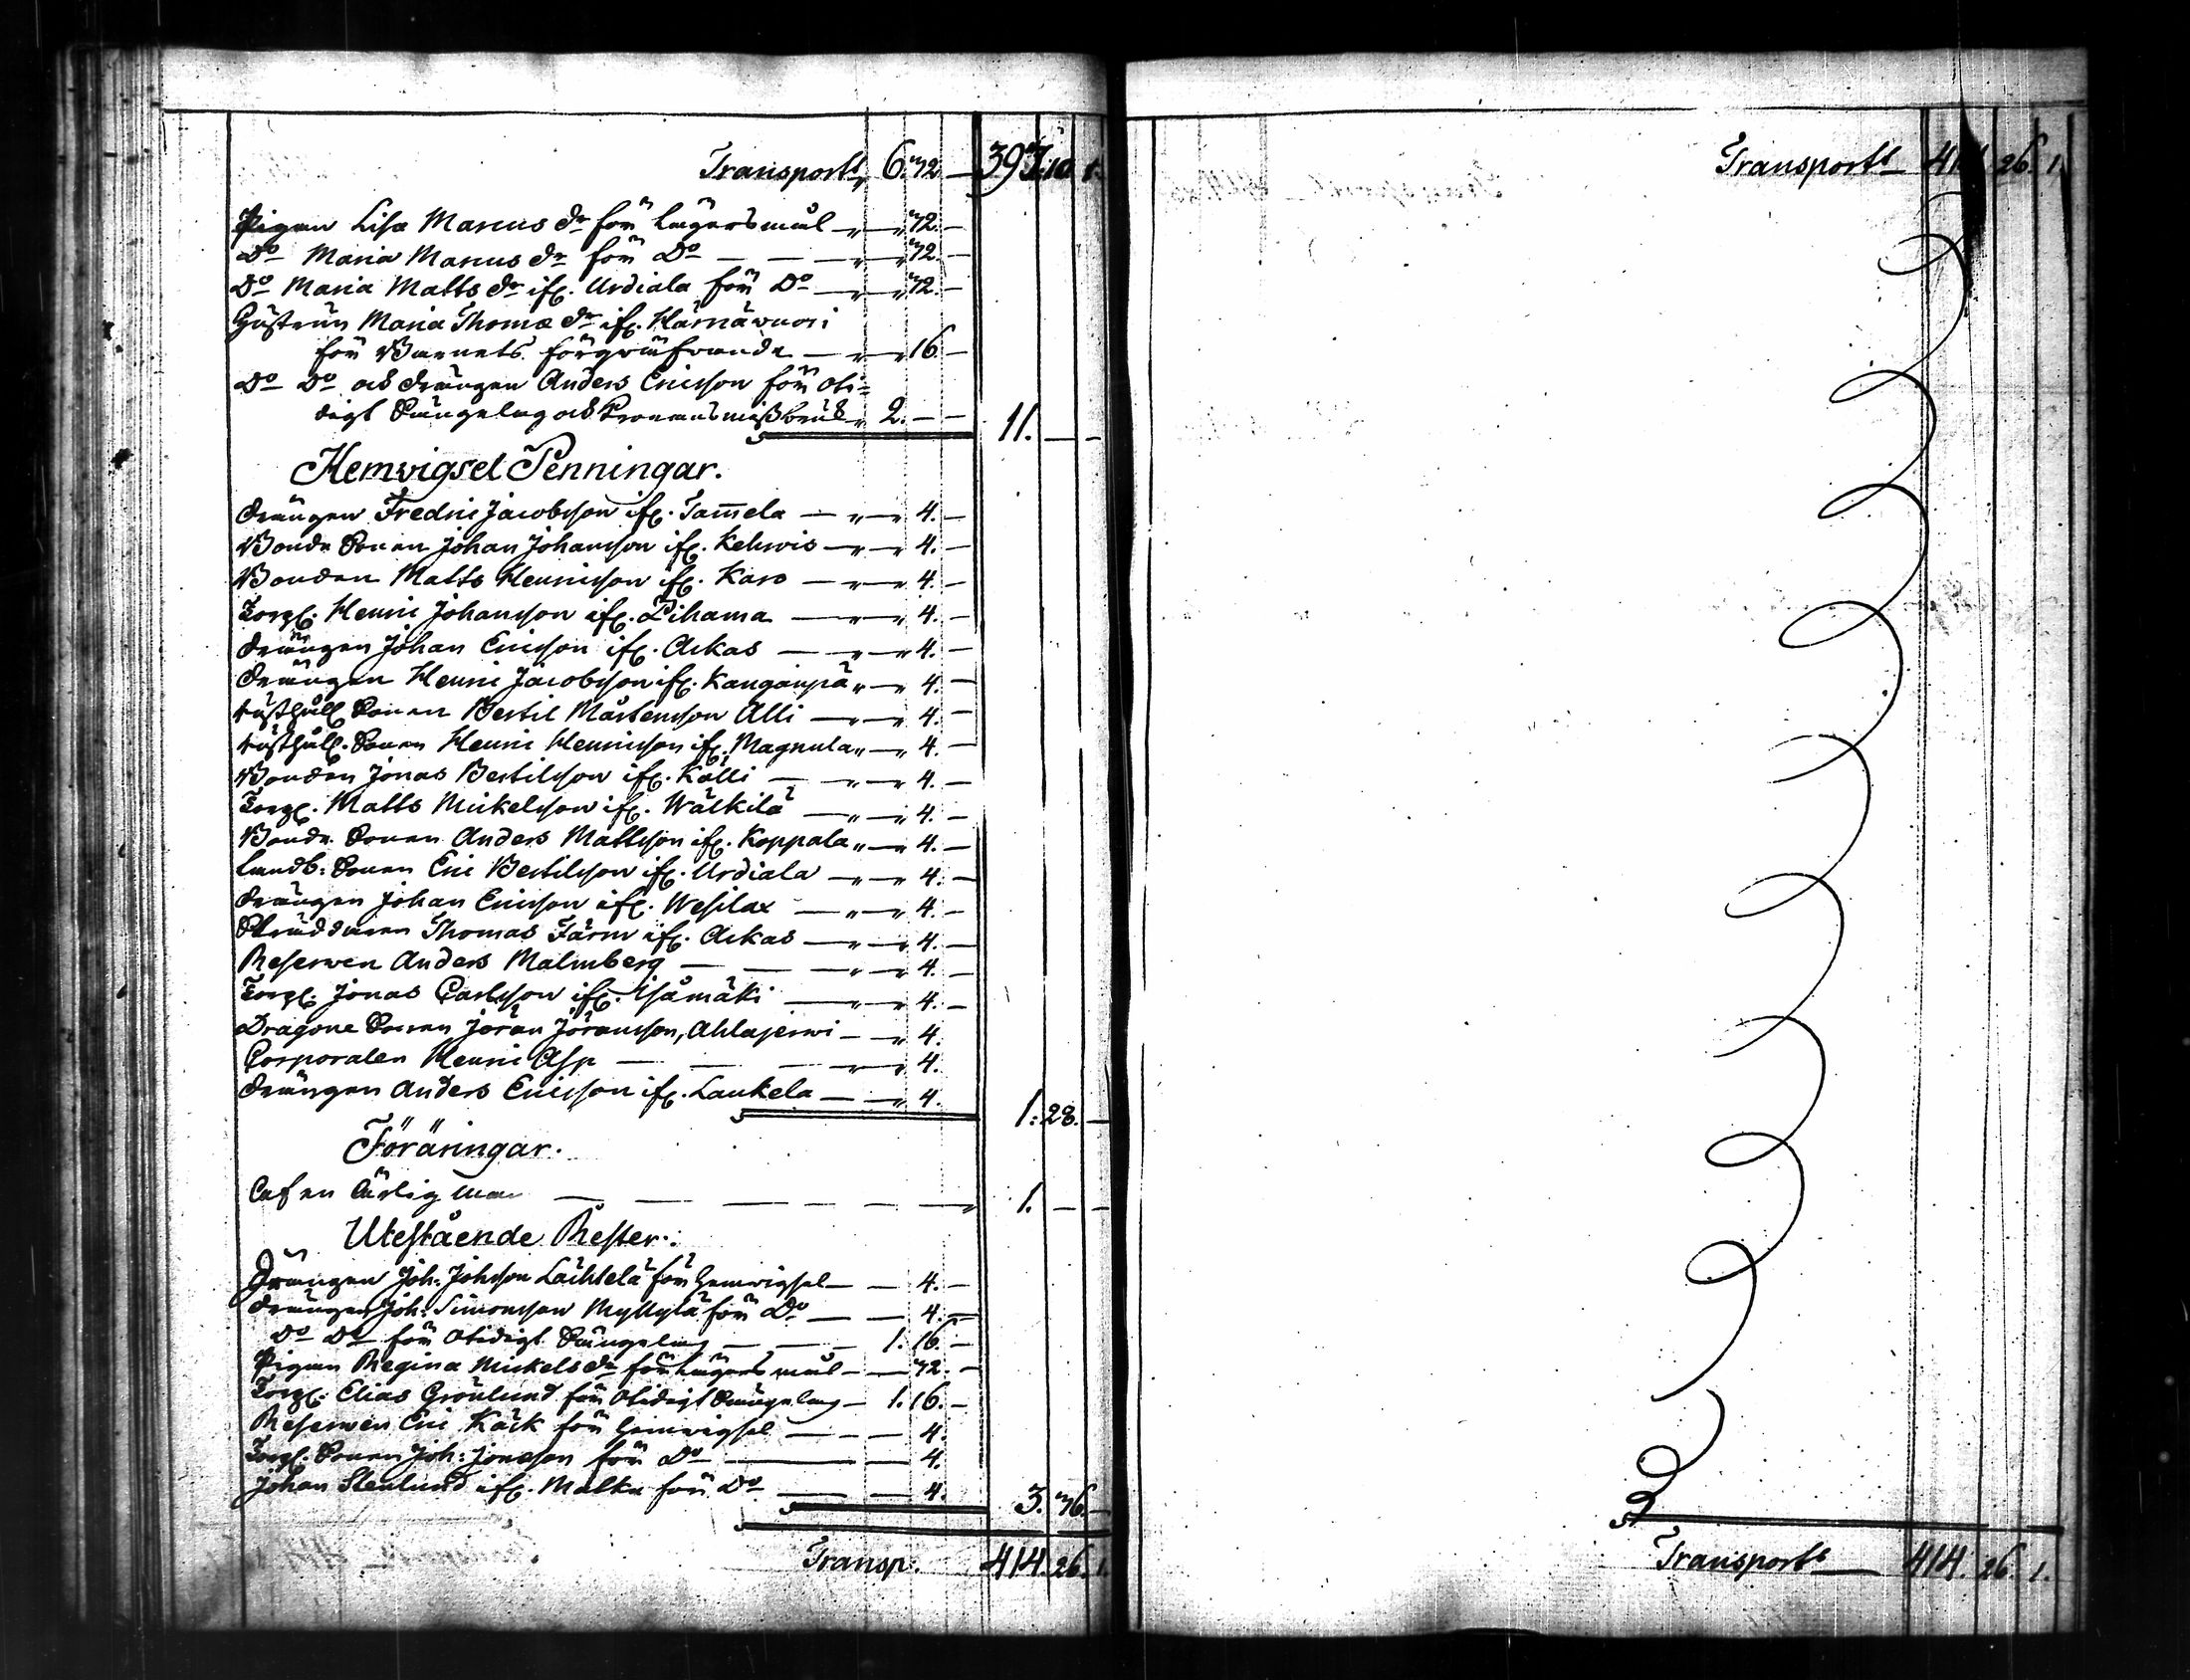 Transport 6. 72. — 397. 10. 1.
Pigan Lisa Marcus dr för Lägersmål — „ — 72. —
Do Maria Marcus dr för Do — — „ — 72. —
Do Maria Matts dr ifr. Urdiala för Do — „ — 72. —
Hustrun Maria Thomæ dr ifr. Härnäwuori
för Barnets förqväfvande — „ — 16. —
Do Do och drängen Anders Ericsson för oti-
digt Sängelag och Kronans mißbruk „ 2. — — 11. — —
Hemvigsel Penningar.
Drängen Fredric Jacobsson ifr. Tam̄ela — „ — 4. —
Bonde Sonen Johan Johansson ifr. Kehwis — „ — 4. —
Bonden Matts Henricsson ifr. Karo — „ — 4. —
Torp. Henric Johansson ifr. Pihama — „ — 4. —
Drängen Johan Ericsson ifr. Arkas — „ — 4. —
Drängen Henric Jacobsson ifr. Kanganpä „ — 4. —
Rusthåll. Sonen Bertil Mårtensson Alli — „ — 4. —
Rusthåll. Sonen Henric Henricsson ifr. Magnula „ — 4. —
Bonden Jonas Bertilsson ifr. Källi — „ — 4. —
Torp. Matts Mickelsson ifr. Wälkilä — „ — 4. —
Bonde Sonen Anders Mattsson ifr. Koppala „ — 4. —
Landb. Sonen Eric Bertilsson ifr. Urdiala — „ — 4. —
Drängen Johan Ericsson ifr. Wesilax — „ — 4. —
Skräddaren Thomas Färm ifr. Arkas — „ — 4. —
Reserven Anders Malmberg — — „ — 4. —
Torp. Jonas Carlsson ifr. Isåmäki — „ — 4. —
Dragone Sonen Jöran Jöransson, Ahlajerwi — „ 4.
Corporalen Henric Asp — — „ 4.
Drängen Anders Ericsson ifr. Laukela — „ 4. 1. 28. —
Föräringar.
Af en Ärlig Man — — — — — 1. — —
Utestående Rester.
Drängen Joh. Johsson Lächtelä för Hemwigsel — — 4. —
Drängen Joh. Simonsson Myllylä för Do — — 4. —
Do Do för Otidigt Sängelag — — 1. 16. —
Pigan Regina Mickels dr för Lägersmål — — 72. —
Torp. Elias Grönlund för Otidigt Sängelag — 1. 16. —
Reserven Eric Käck för Hemwigsel — — 4.
Torp. Sonen Joh. Jonasson för Do — — 4.
Johan Stenlund ifr. Matku för Do — — 4. 3. 76. —
Transp. 414. 26. 1.
Transport 414. 26. 1.
Transport — 414. 26. 1.